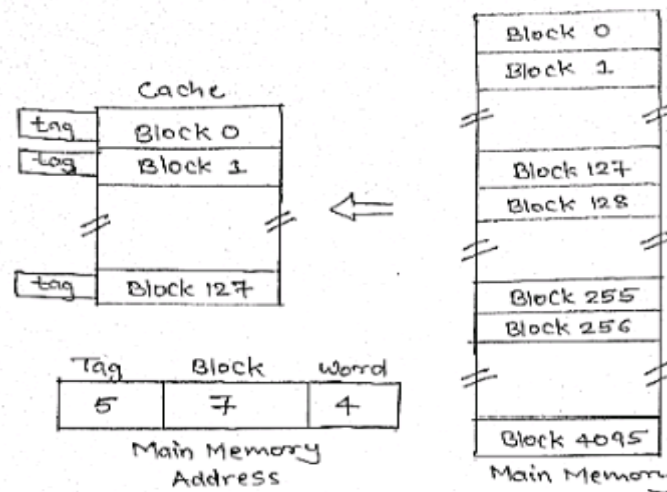 Cache
tag Block 0
tag Block 1
tag Block 127
Tag Block Word
5 7 4
Main Memory
Address
Block 0
Block 1
Block 127
Block 128
Block 255
Block 256
Block 4095
Main Memory